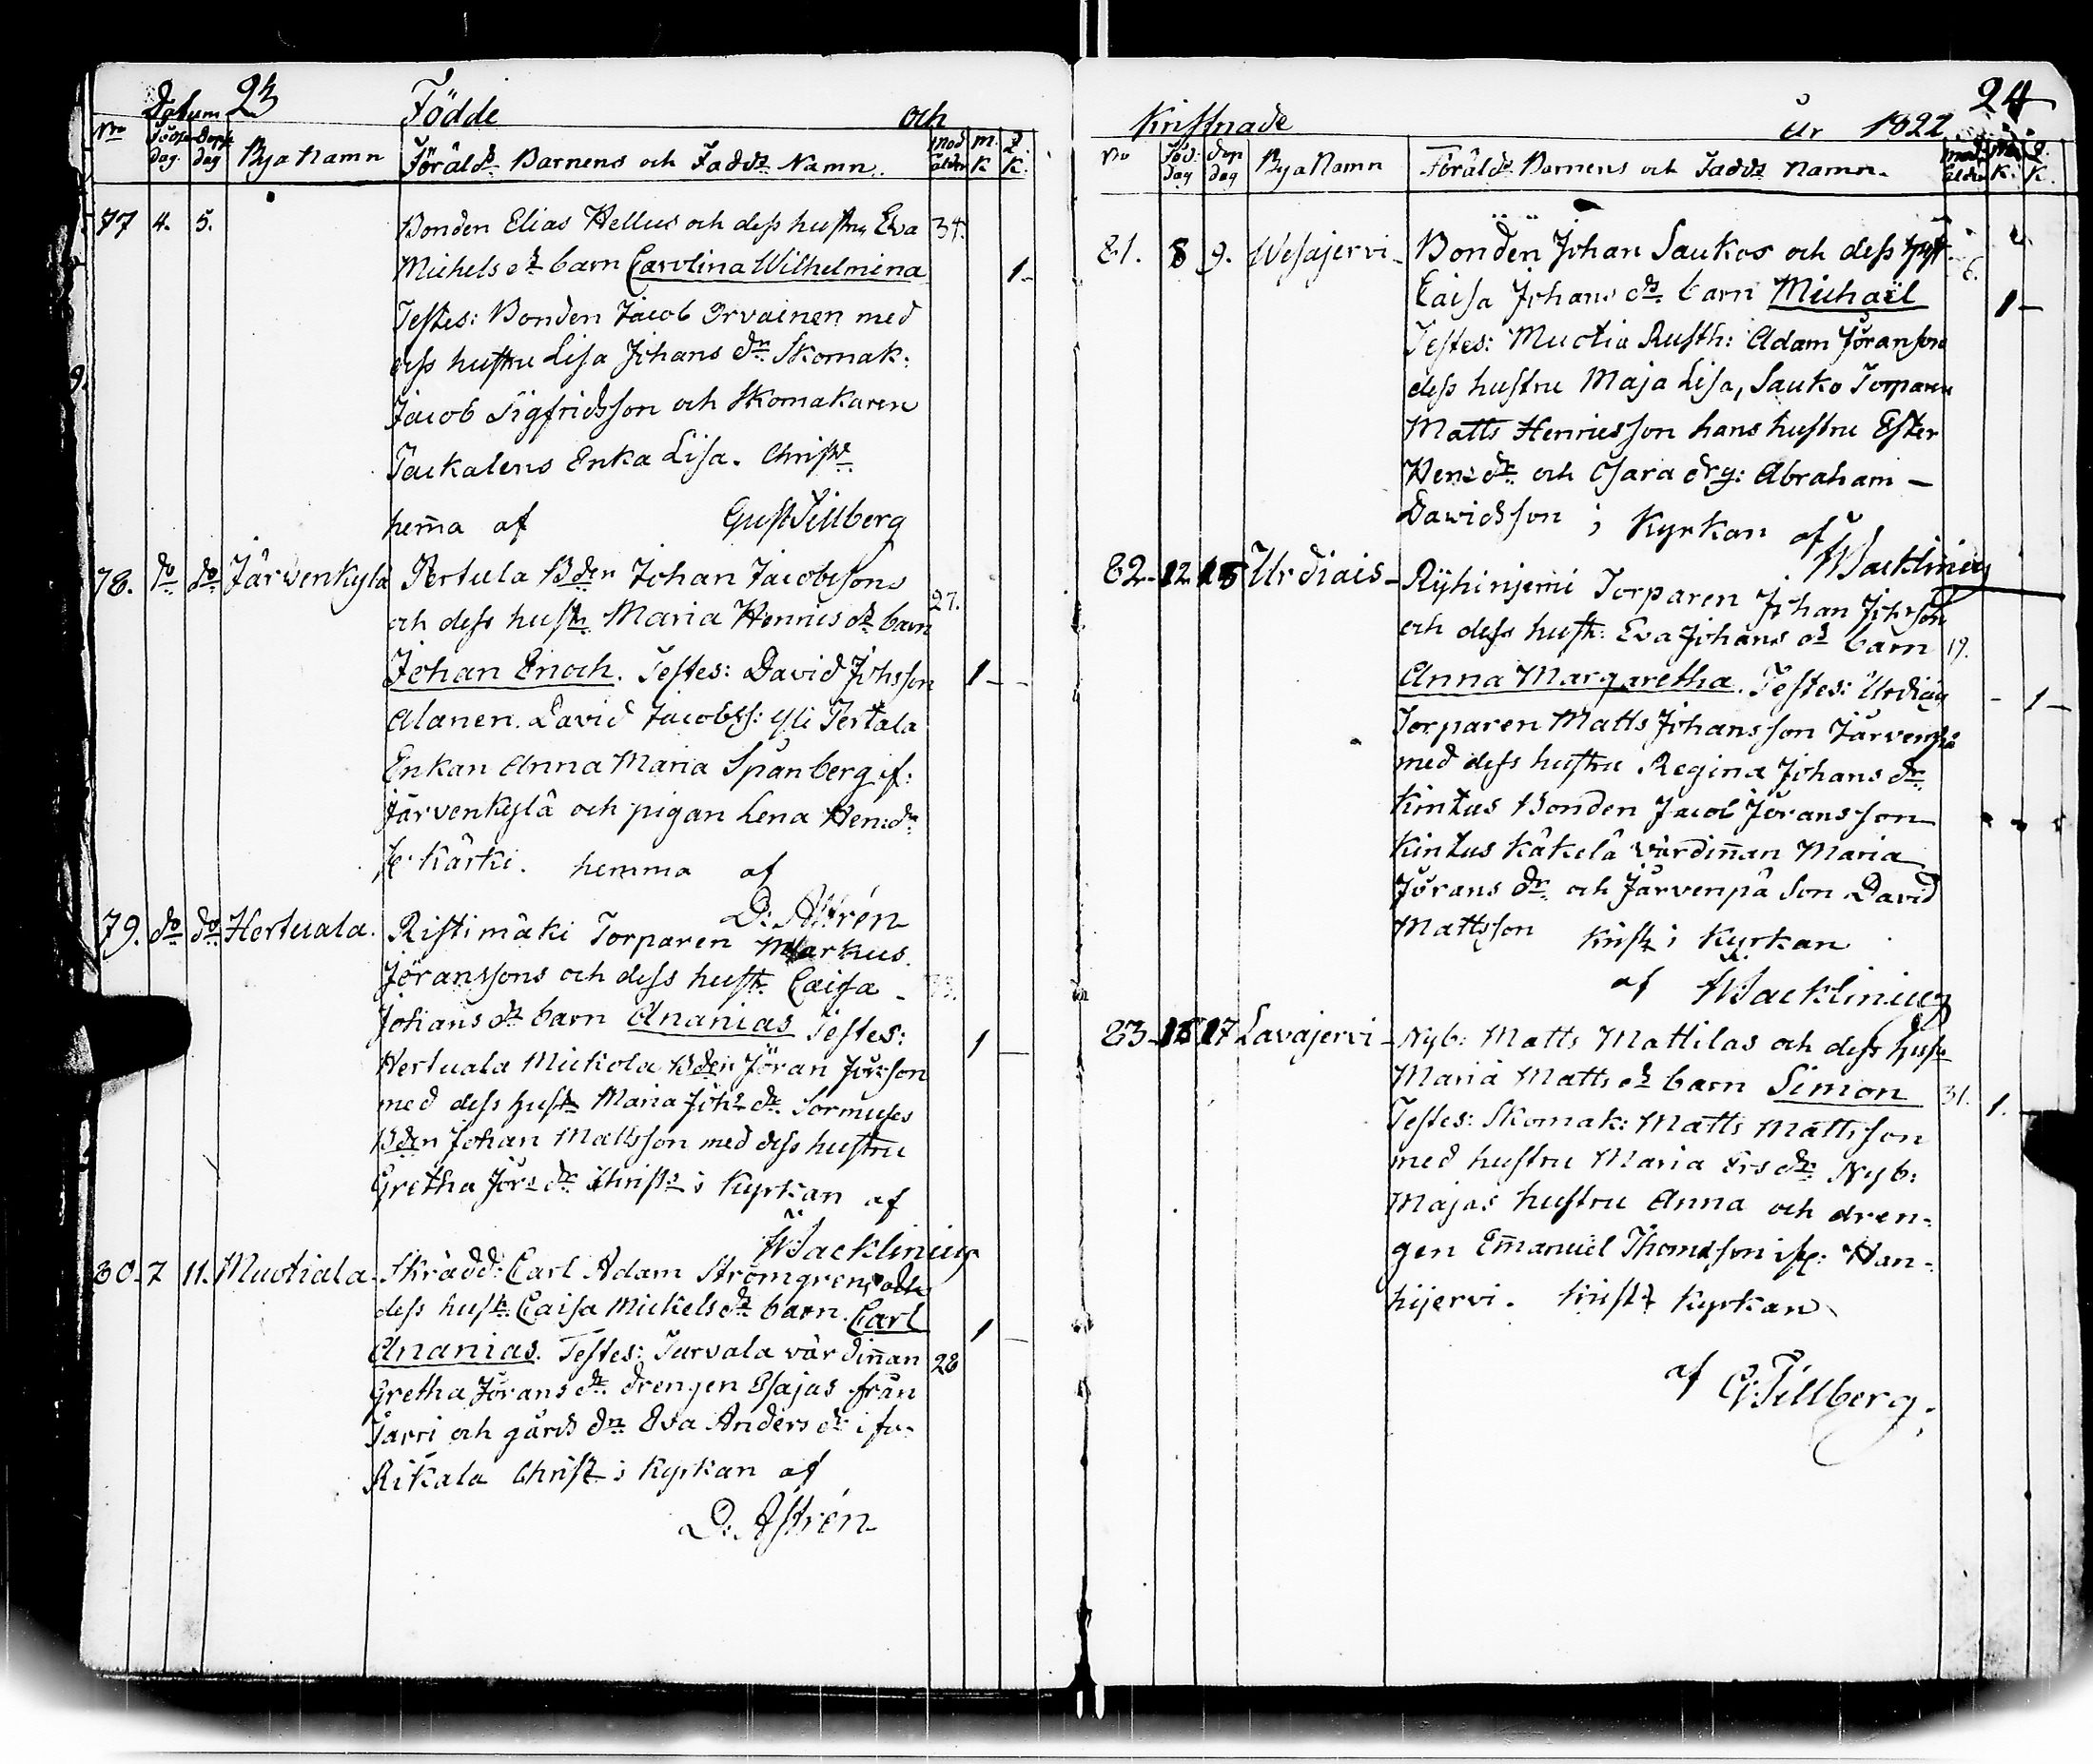 Datum 23 Födde och
No Födse dag. Dops dag Bya Namn Förälds. Barnens och Faddz. Namn. Mod ålder M. K Q. K.
77 4. 5. Bonden Elias Hellus och dess hustru Eva 34.
Michels dr barn Carolina Wilhelmina 1-
Testes: Bonden Jacob Orvainen med
dess hustru Lisa Johans dr. Skomak:
Jacob Sigfridsson och Skomakaren
Taukalens Enka Lisa. Christ
hema af Gust Tillberg
78. do do Järvenkylä Pertula Bden Johan Jacobssons 27.
och dess hust. Maria Henrics dr barn
Johan Enoch. Testes: David Johsson 1-
Alanen. David Jacobss: Yli Tertala
Enkan Anna Maria Spånberg if:
Järvenkylä och pigan Lena Hen: dr
Kärki. hemma af
D: Astrén
79. do do Hertuala. Ristimäki Torparen Markus
Jöranssons och dess hust. Caisa
Johans dr barn Ananias Testes: 1
Hertuala Mickola Bden Jöran Jörsson
med dess hust Maria Joh dr. Sormuses
Bden Johan Mattsson med dess hustru
Gretha Jör dr Christ i Kyrkan af
Wacklinius
80. 7 11. Muotiala. Skrädd: Carl Adam Strömgrens och
dess hust. Caisa Mickels dr barn. Carl 1
Ananias. Testes: Turvala värdinnan 28
Gretha Jörans dr. drengen Esajas från
Jarri och gårds dr Eva Anders dr i fr.
Rikala Christ i Kyrkan af
D: Astrén
24
Kristnade År 1822
No Föd: dag Dop dag Bya Namn Föräld. Barnens och Faddz Namn. Mod. ålder M. K. Q. K.
81. 8 9. Wesajervi- Bonden Johan Saukos och dess hust
Caisa Johans dr. barn Michaël 1-
Testes: Muotia Rusth: Adam Jöransson
dess hustru Maja Lisa, Sauko Torparen
Matts Henricsson hans hustru Ester
Hen: dr och Osara drg: Abraham-
Dawidsson i Kyrkan af
Wacklinius
82- 12 15 Urdiais- Ryhinjemi Torparen Johan Johsson
och dess hust: Eva Johans dr barn 19.
Anna Margaretha. Testes: Urdiais - 1-
Torparen Matts Johansson Järvenpä
med dess hustru Regina Johans dr
Kintus Bonden Jacob Jöransson
Kintus Käkelä värdinnan Maria
Jörans dr och Järvenpä Son David
Mattsson Krist i Kyrkan
af Wacklinius
83- 15 17 Lavajervi- Nyb: Matts Mattilas och dess Hust
Maria Matts dr barn Simon 31. 1.-
Testes: Skomak: Matts Mattsson
med hustru Maria Ers dr. Nyb:
Majas hustru Anna och dren-
gen Emanuel Thomasson if: Han-
hijervi. Krist i Kyrkan
af G: Tillberg.